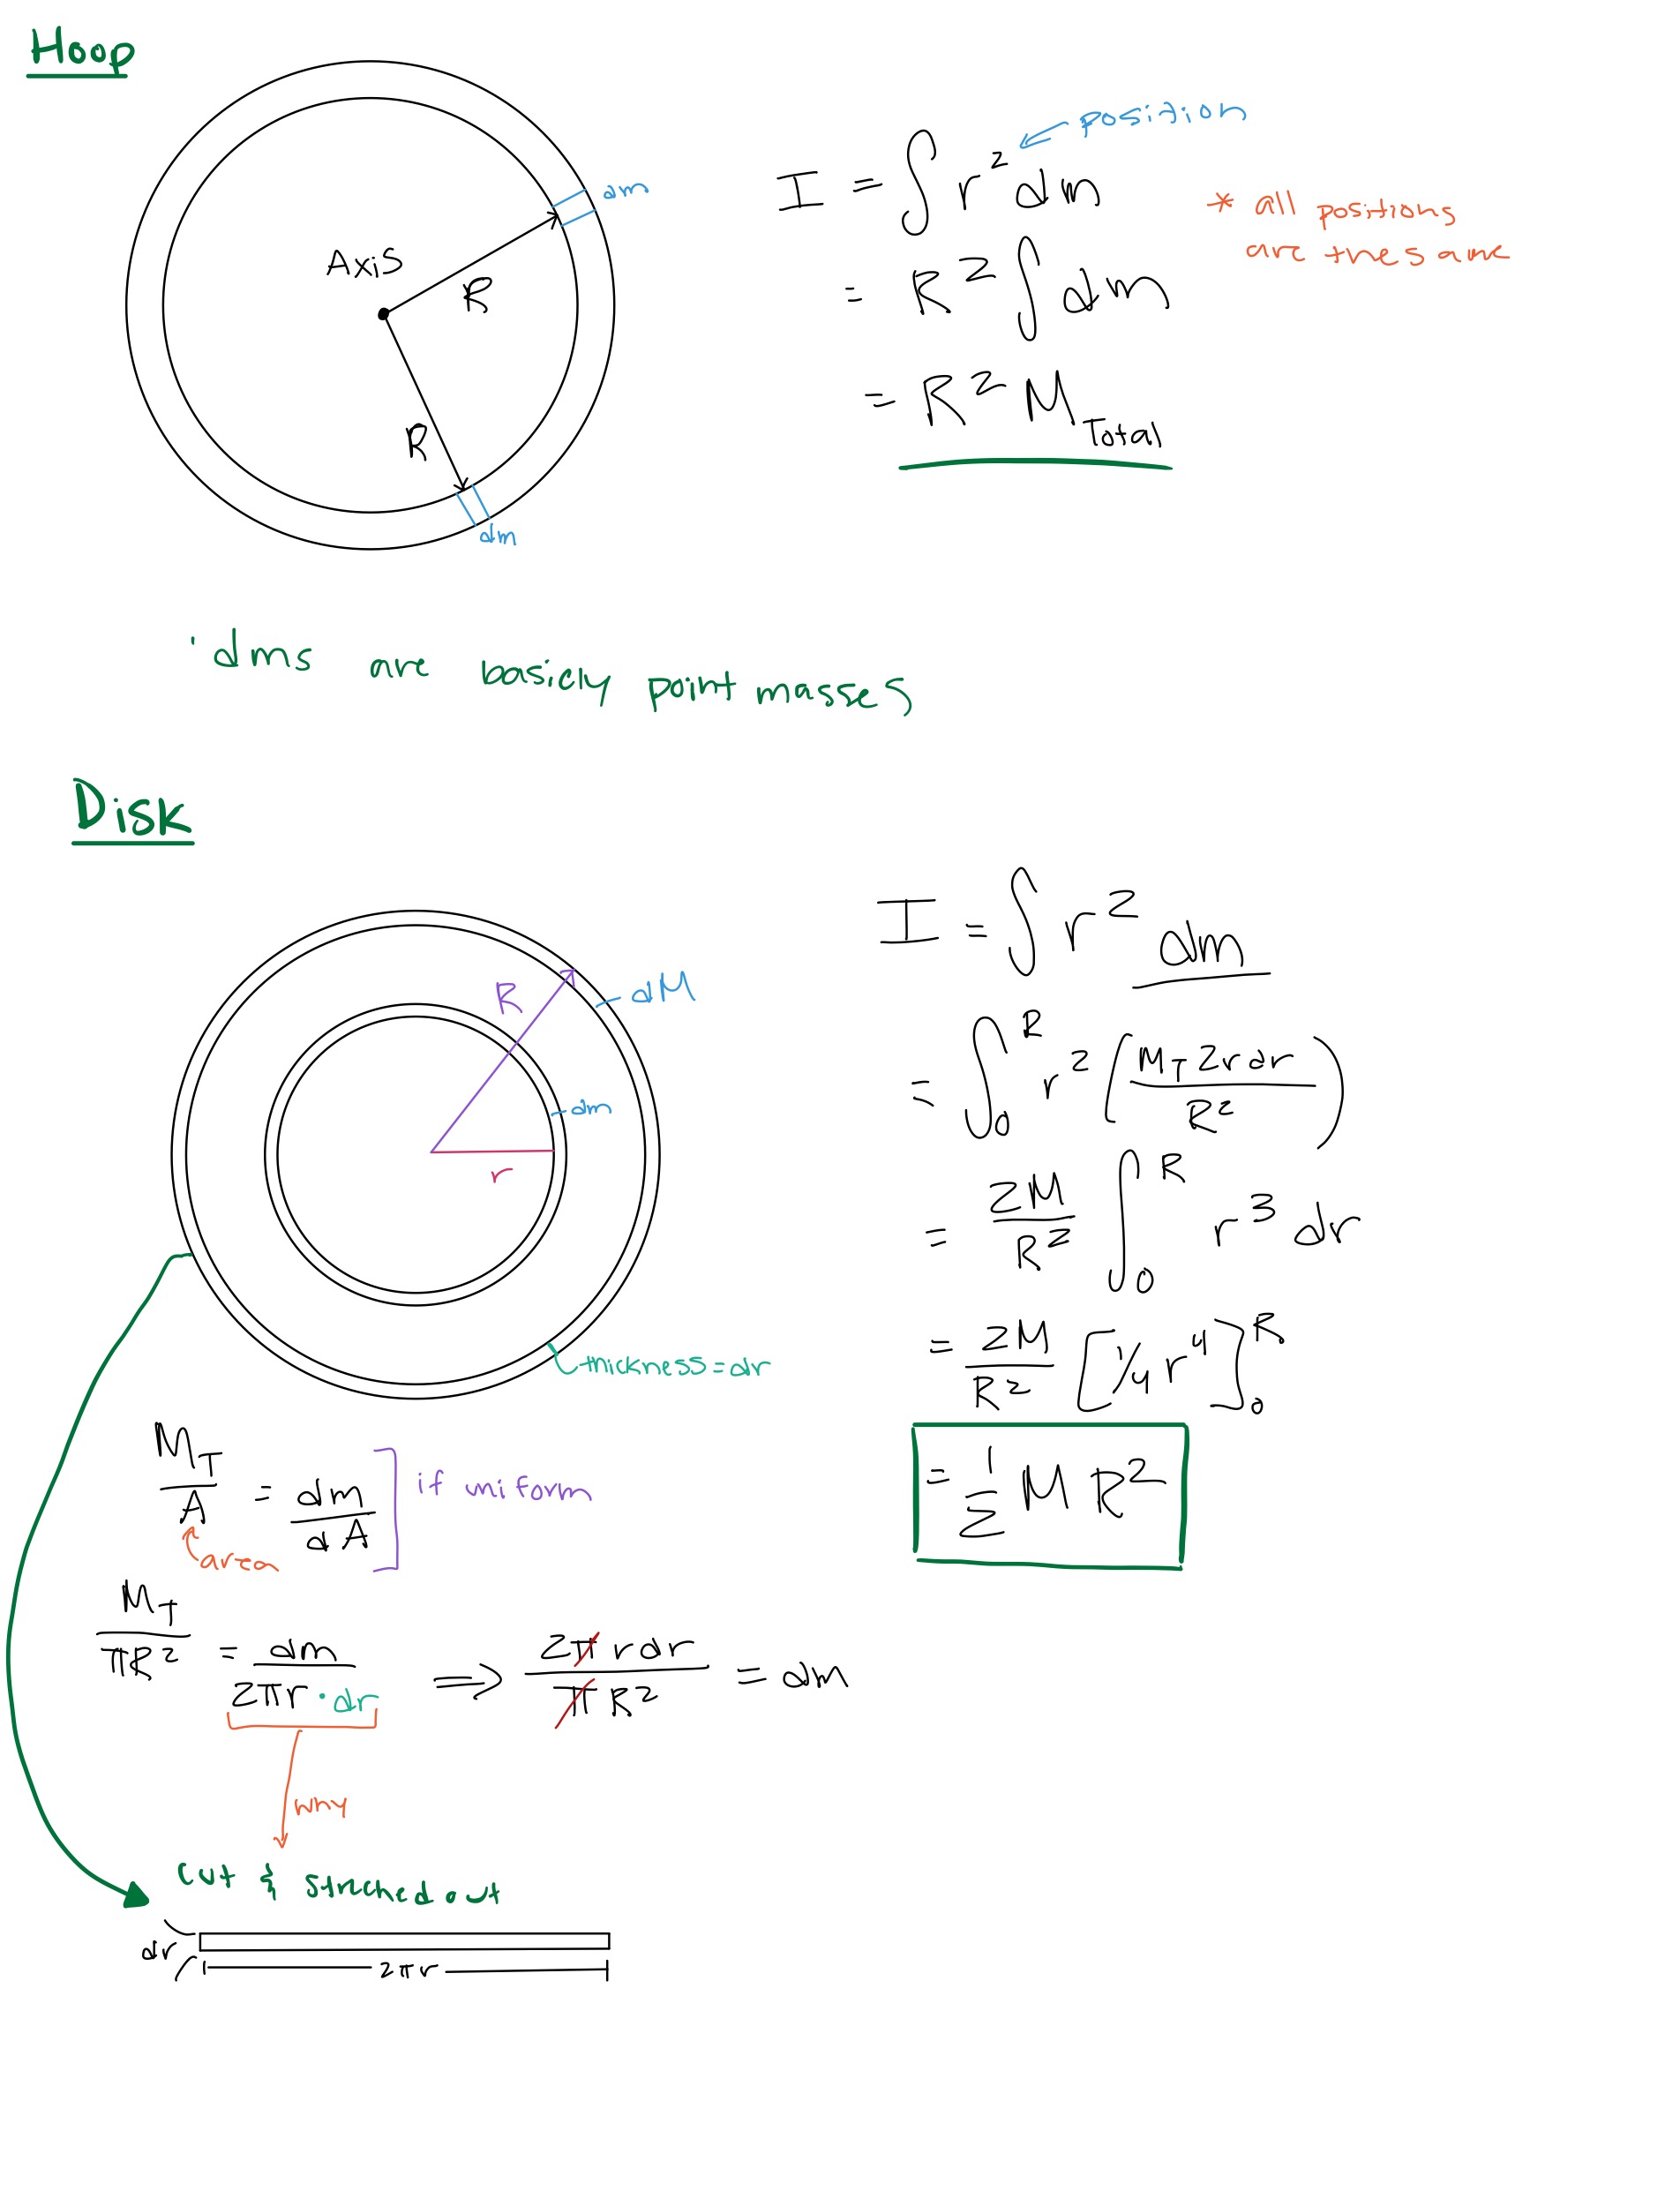 Hoop
dm
Axis
R
R
dm
I = ∫ r² dm
position
= R² ∫ dm
* all positions
are the same
= R² M_Total
· dms are basicly point masses
Disk
R
dM
dm
r
thickness = dr
I = ∫ r² dm
= ∫₀^R r² (M_T 2rdr / R²)
= 2M/R² ∫₀^R r³ dr
= 2M/R² [¼ r⁴]₀^R
= ½ M R²
M_T/A = dm/dA ] if uniform
area
M_T/πR² = dm/2πr·dr ⟹ 2πrdr/πR² = dm
why
cut & streched out
dr
2πr